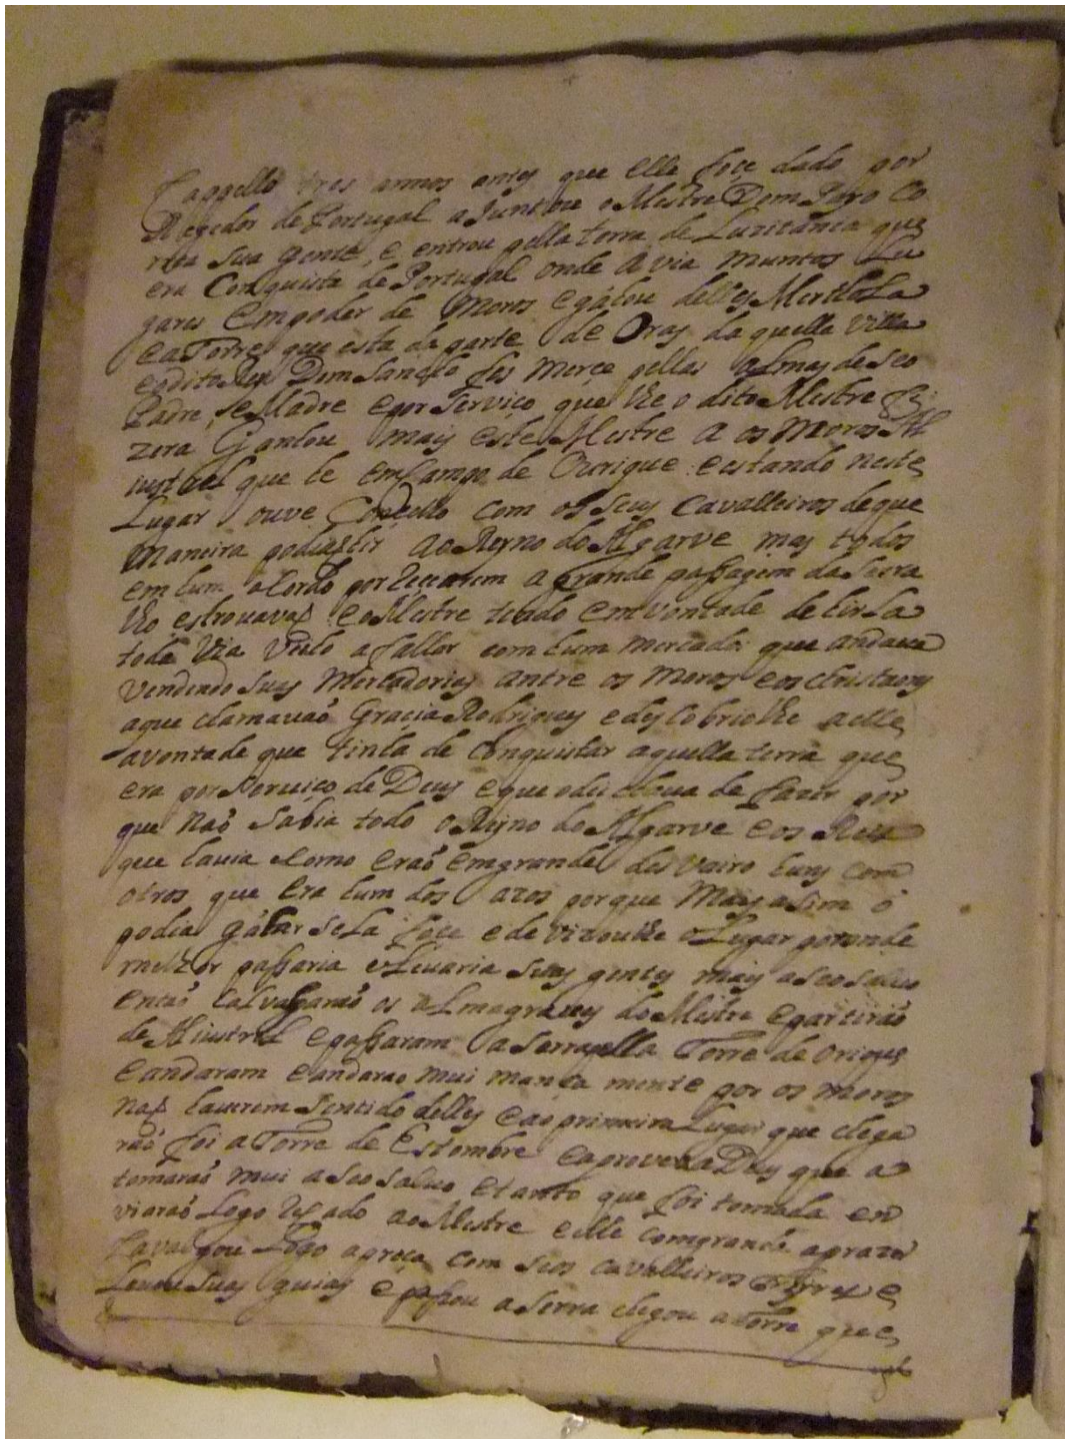 Capello tres annos antes que elle foce dado por
Regedor de Portugal ajuntou o Mestre Dom Payo Co
rea sua gente, e entrou pella terra de Luzitania que
era Conquista de Portugal onde avia muntos Lu
gares em poder de Moros e gañou delles Mertola
e a Torre que esta da parte de daquella villa
e o dito Rey Dom Sancho fes merce pellas almas de seo
Padre, e Madre e por serviço que lhe o dito Mestre fi
zera Ganhou mais este Mestre a os Moros Al
justrel que he em Campo de Ourique e estando neste
Lugar ouve Concelho com os seus Cavalleiros de que
maneira podia ir ao Reyno do Algarve mas todos
em hum acordo por a grande passagem da serra
lho estrovavaõ e o Mestre tendo em vontade de
toda via veio a fallar com hum mercador que andava
vendendo suas mercadorias antre os Moros e os christaons
a que chamavaõ Gracia Rodrigues e descobriolhe a elle
a vontade que tinha de conquistar aquella terra que
era por serviço de Deus e que o deichava de fazer por
que naõ sabia todo o Reyno do Algarve e os Reis
que havia e como eraõ em grande desvairo huns com
otros que era hum dos azos porque mais asim o
podia gañar se la foce e devizoulhe o Lugar por onde
melhor passaria e levaria suas gentes mais a seo salvo
entaõ cavalgaraõ os almogaves do Mestre e partiraõ
de Aljustrel e passaram a serra pella Torre de Orique
e andaram e andarao mui mança mente por os moros
naõ haverem sentido delles e ao primeiro Lugar que chega
raõ foi a Torre de Estombre e aprouve a Deus que a
tomaraõ mui a seo salvo e tanto que foi tomada en
viaraõ logo recado ao Mestre e elle com grande aprazer
cavalgou logo a preça com seos cavalleiros e
Levou suas guias e passou a serra chegou a Torre que